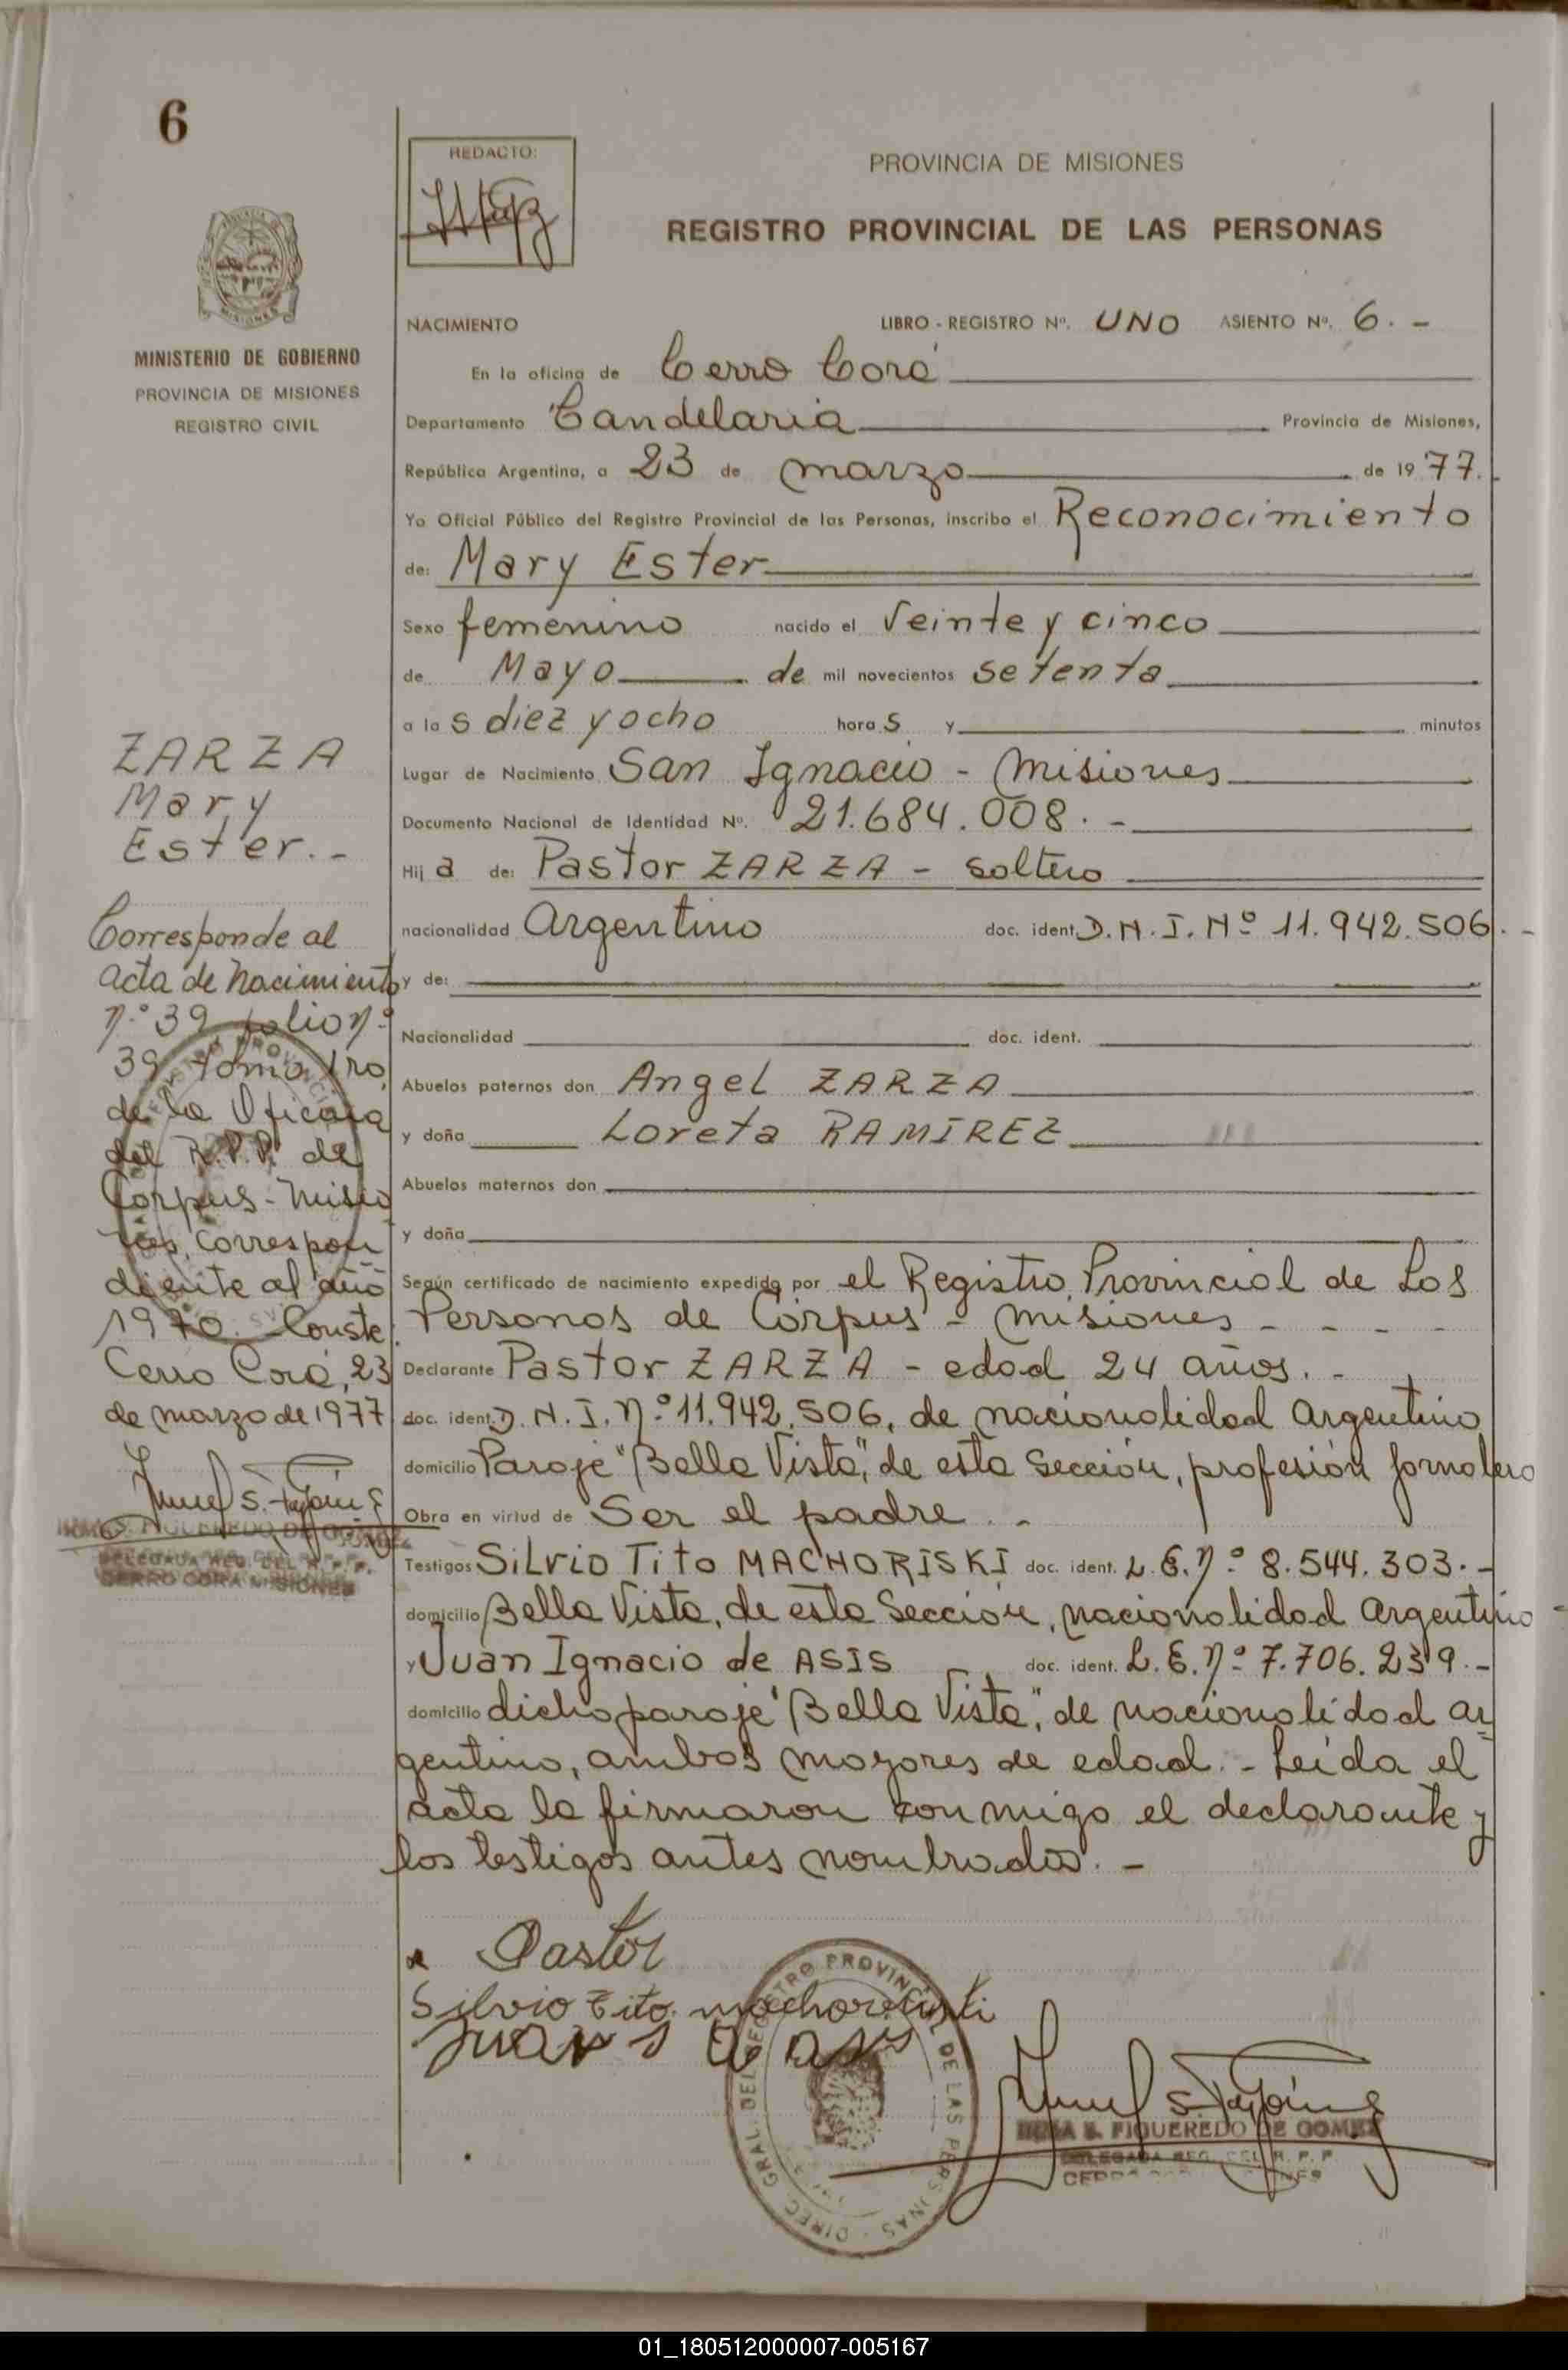 6
REDACTO:
PROVINCIA DE MISIONES
REGISTRO PROVINCIAL DE LAS PERSONAS
MISIONES
MINISTERIO DE GOBIERNO
PROVINCIA DE MISIONES
REGISTRO CIVIL
NACIMIENTO LIBRO - REGISTRO Nº. UNO ASIENTO Nº. 6. -
En la oficina de Cerro Corá
Departamento Candelaria Provincia de Misiones,
República Argentina, a 23 de marzo de 1977.
Yo Oficial Público del Registro Provincial de las Personas, inscribo el Reconocimiento
de: Mary Ester
Sexo femenino nacido el Veinte y cinco
de Mayo de mil novecientos setenta
a las diez y ocho horas y minutos
Lugar de Nacimiento San Ignacio - Misiones
Documento Nacional de Identidad Nº. 21.684.008. -
Hija de: Pastor ZARZA - soltero
nacionalidad Argentino doc. ident. D.N.I. Nº 11.942.506. -
y de:
Nacionalidad doc. ident.
Abuelos paternos don Angel ZARZA
y doña Loreta RAMIREZ
Abuelos maternos don
y doña
Según certificado de nacimiento expedido por el Registro Provincial de Las
Personas de Corpus - Misiones - - - -
Declarante Pastor ZARZA - edad 24 años. -
doc. ident. D.N.I. Nº 11.942.506, de nacionalidad Argentino
domicilio Paraje "Bella Vista", de esta Sección, profesión jornalero
Obra en virtud de Ser el padre. -
Testigos Silvio Tito MACHORISKI doc. ident. L.E. Nº 8.544.303. -
domicilio Bella Vista, de esta Sección, nacionalidad Argentino -
y Juan Ignacio de ASIS doc. ident. L.E. Nº 7.706.239. -
domicilio dicho paraje "Bella Vista", de nacionalidad Ar
gentino, ambos mayores de edad. - Leída el
acta la firmaron conmigo el declarante y
los testigos antes nombrados. -
ZARZA
Mary
Ester. -
Corresponde al
acta de Nacimiento
Nº 39 folio Nº
39 tomo 1ro
de la Oficina
del R.P.P. de
Corpus - Misio
nes, correspon
diente al año
1970. - Conste.
Cerro Corá, 23
de marzo de 1977
FIGUEREDO DE GOMEZ
DELEGADA REG. DEL R. P. P.
CERRO CORA MISIONES
Pastor
Silvio Tito
DIREC. GRAL. DEL REGISTRO PROVINCIAL DE LAS PERSONAS
S. FIGUEREDO DE GOMEZ
DELEGADA REG. DEL R. P. P.
01_180512000007-005167